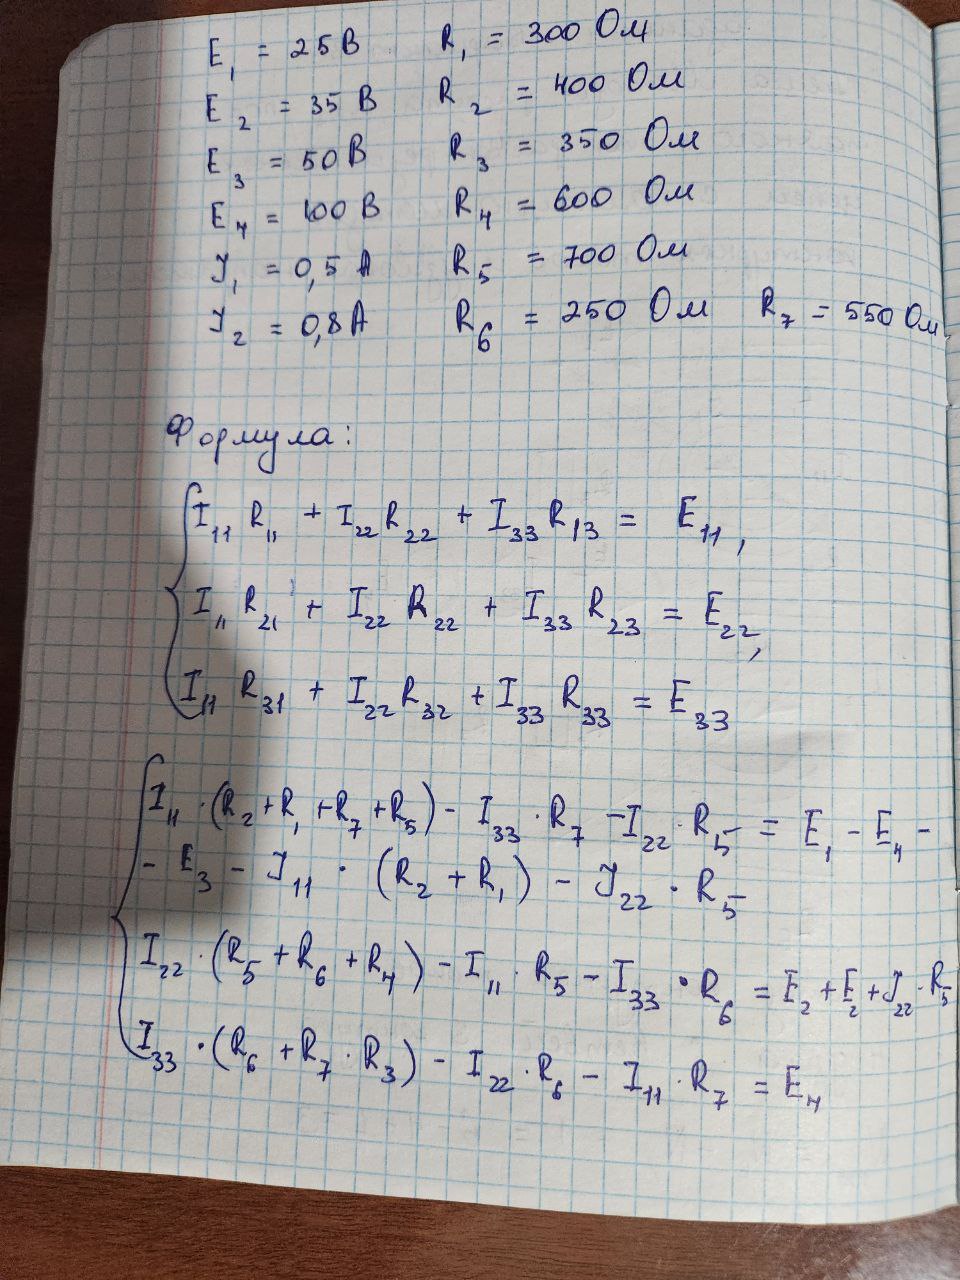 E₁ = 25 В R₁ = 300 Ом
E₂ = 35 В R₂ = 400 Ом
E₃ = 50 В R₃ = 350 Ом
E₄ = 100 В R₄ = 600 Ом
J₁ = 0,5 А R₅ = 700 Ом
J₂ = 0,8 А R₆ = 250 Ом R₇ = 550 Ом
Формула:
I₁₁ R₁₁ + I₂₂ R₂₂ + I₃₃ R₁₃ = E₁₁,
I₁₁ R₂₁ + I₂₂ R₂₂ + I₃₃ R₂₃ = E₂₂,
I₁₁ R₃₁ + I₂₂ R₃₂ + I₃₃ R₃₃ = E₃₃
I₁₁ · (R₂ + R₁ + R₇ + R₅) - I₃₃ · R₇ - I₂₂ · R₅ = E₁ - E₄ -
- E₃ - J₁₁ · (R₂ + R₁) - J₂₂ · R₅
I₂₂ · (R₅ + R₆ + R₄) - I₁₁ · R₅ - I₃₃ · R₆ = E₂ + E₂ + J₂₂ · R₅
I₃₃ · (R₆ + R₇ · R₃) - I₂₂ · R₆ - I₁₁ · R₇ = E₄